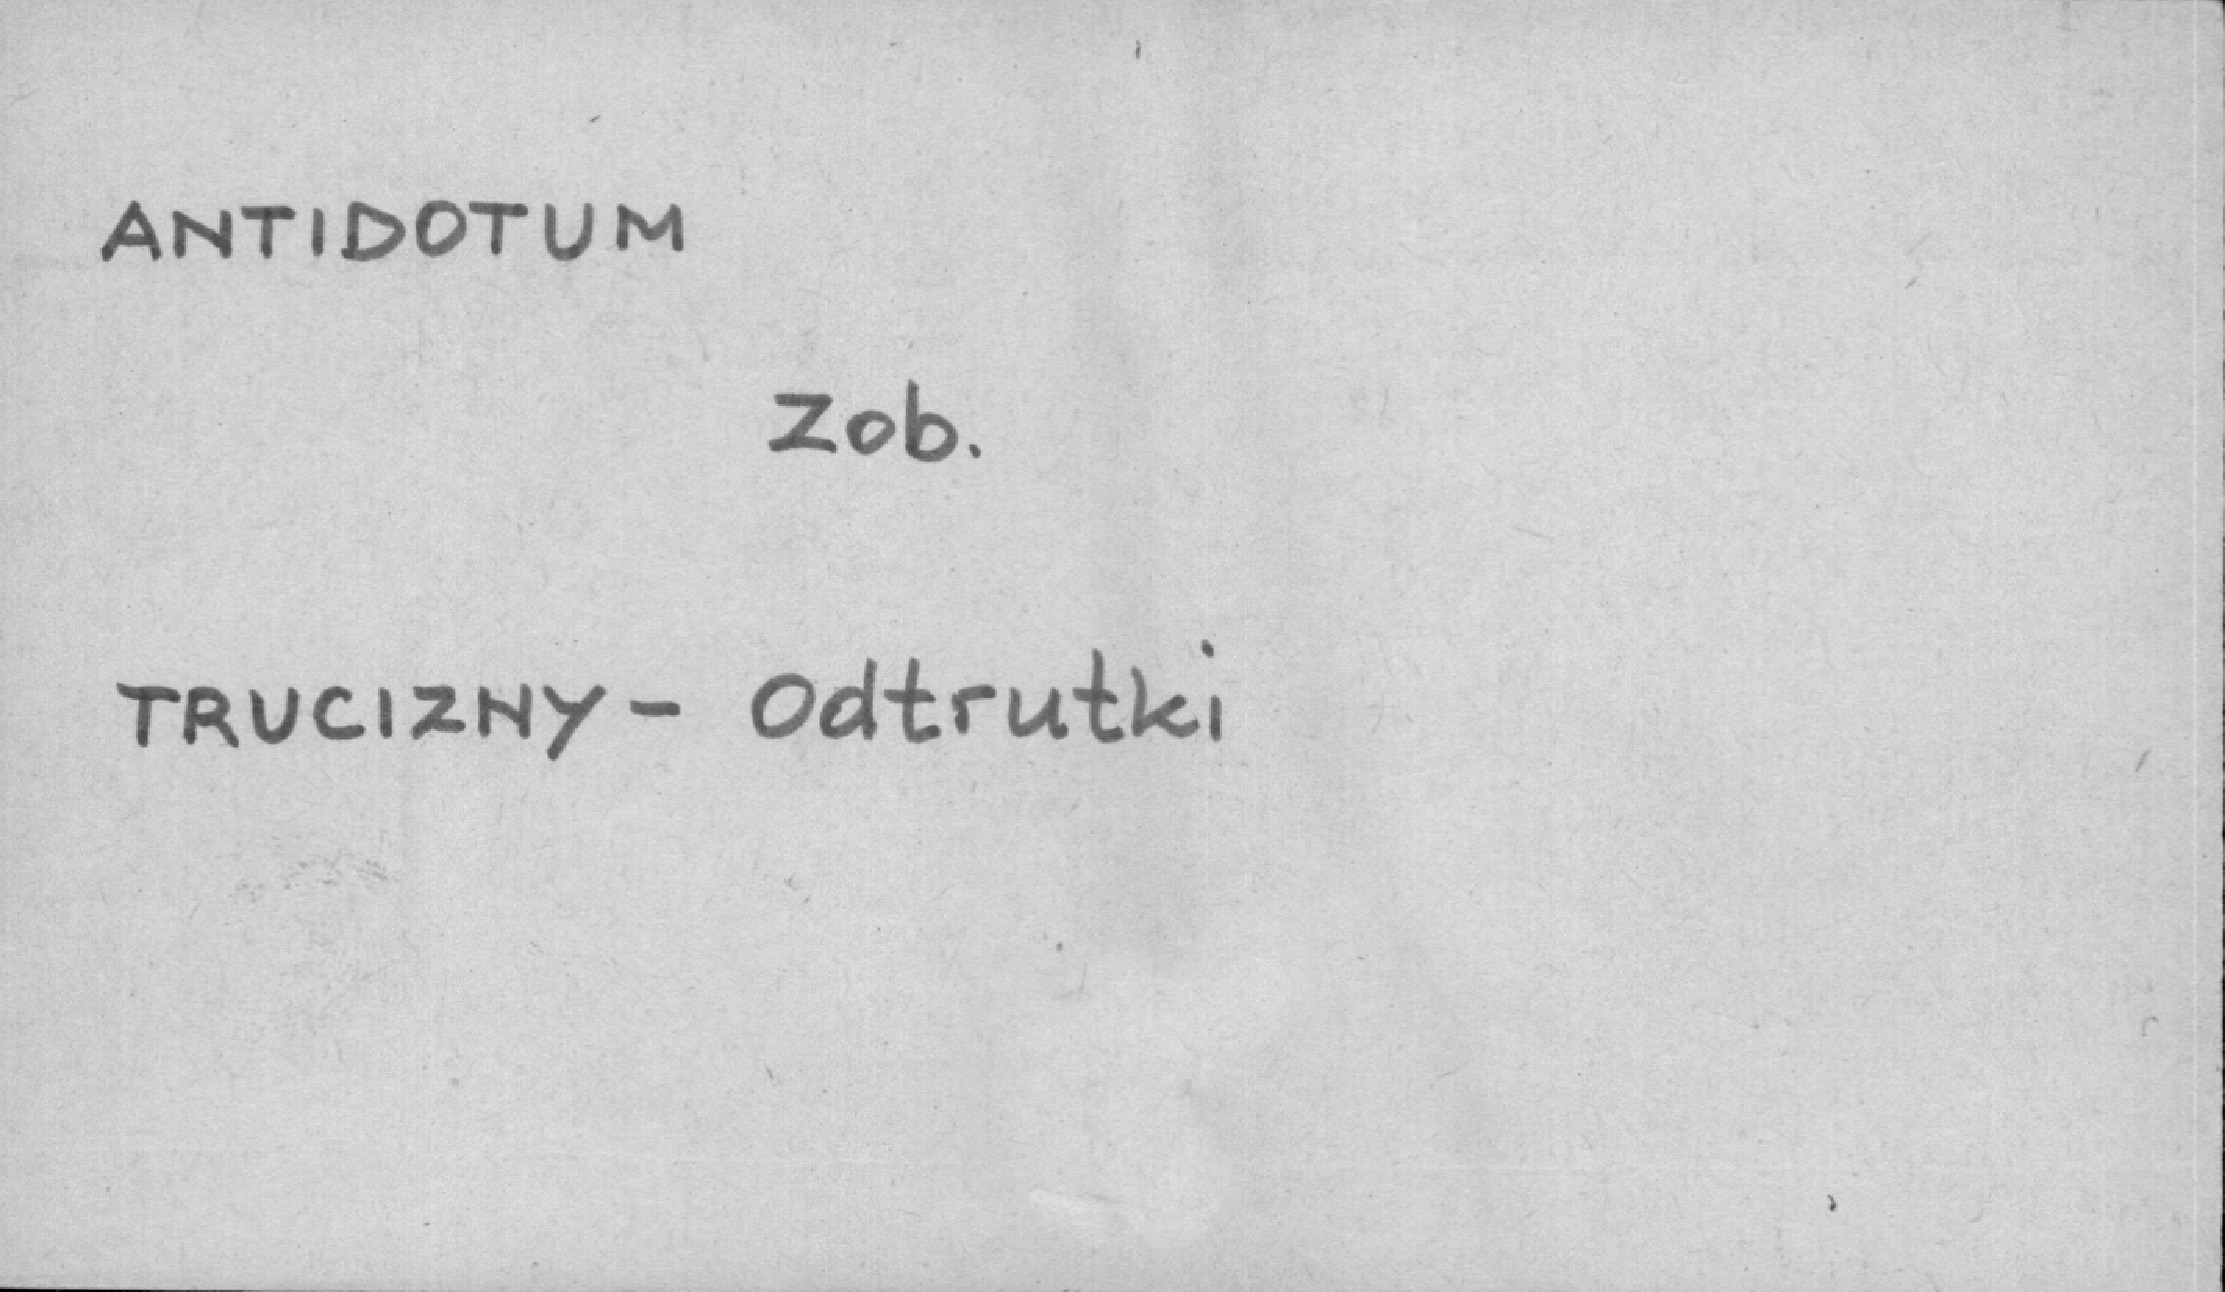 ANTIDOTUM
Zob.
TRUCIZNY - Odtrutki